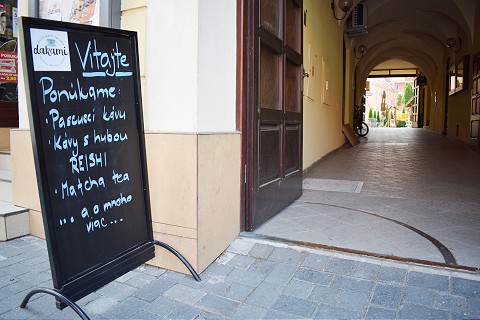 dakami
Vitajte
Ponúkame:
· Pascucci kávu
· Kávy s hubou
REISHI
· Matcha tea
... a o mnoho
viac ...